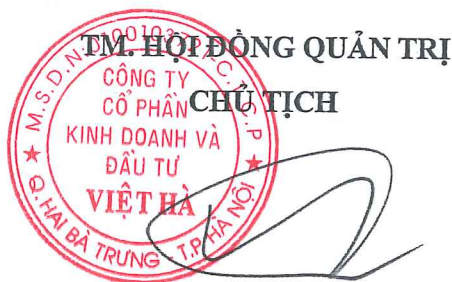 TM. HỘI ĐỒNG QUẢN TRỊ
CHỦ TỊCH
CÔNG TY
CỔ PHẦN
KINH DOANH VÀ
ĐẦU TƯ
VIỆT HÀ
Q. HAI BÀ TRƯNG T.P HÀ NỘI